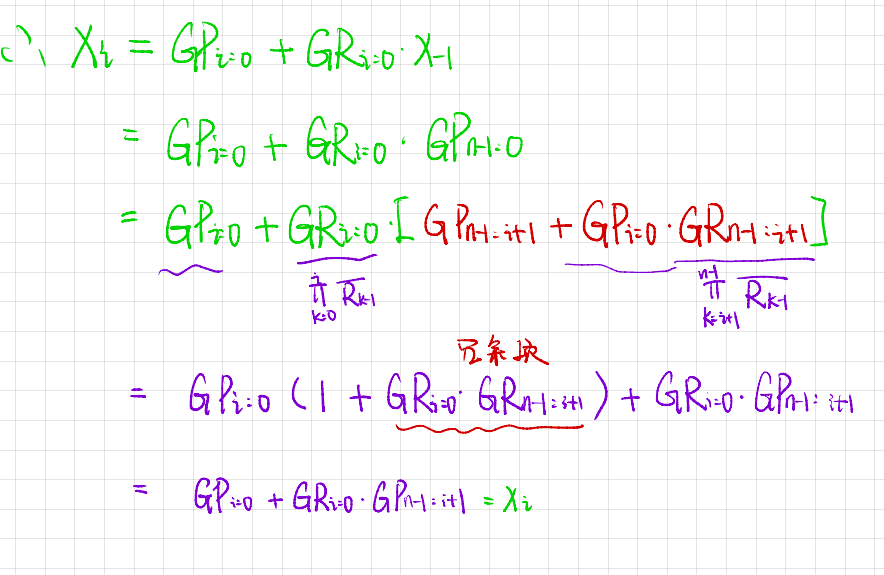 ∴ Xi = GPi:0 + GRi:0 · X-1
= GPi:0 + GRi:0 · GPn-1:0
= GPi:0 + GRi:0 · [ GPn-1:i+1 + GPi:0 · GRn-1:i+1 ]
i∏k=0 \overline{Rk-1} n-1∏k=i+1 \overline{Rk-1}
冗余块
= GPi:0 ( 1 + GRi:0 · GRn-1:i+1 ) + GRi:0 · GPn-1:i+1
= GPi:0 + GRi:0 · GPn-1:i+1 = Xi